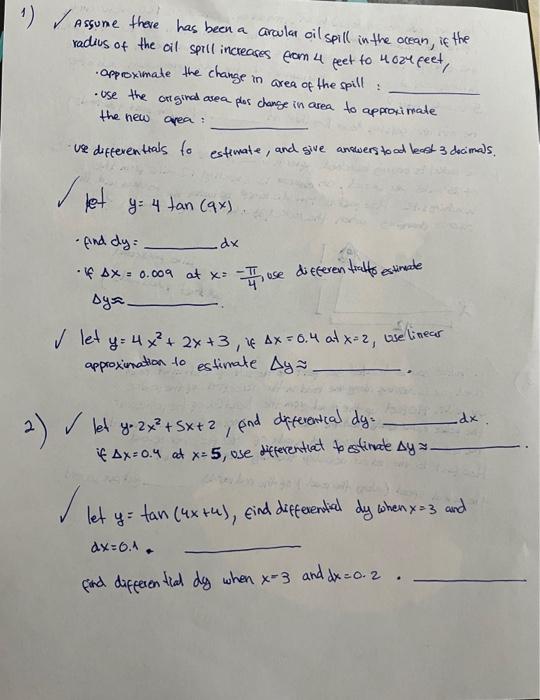 1) ✓ Assume there has been a circular oil spill in the ocean, if the
radius of the oil spill increases from 4 feet to 4.024 feet,
• approximate the change in area of the spill : ______
• use the original area plus change in area to approximate
the new area : ______
• use differentials to estimate, and give answers to at least 3 decimals.
✓ let y= 4 tan (9x)
• find dy= ______ dx
• if Δx = 0.009 at x= -π/4, use differentials to estimate
Δy≈ ______.
✓ let y= 4x² + 2x + 3, if Δx = 0.4 at x=2, use linear
approximation to estimate Δy ≈ ______.
2) ✓ let y= 2x² + 5x + 2, find differential dy= ______ dx.
if Δx=0.4 at x= 5, use differential to estimate Δy ≈ ______.
✓ let y= tan (4x+4), find differential dy when x=3 and
dx=0.1. ______
find differential dy when x=3 and dx=0.2 . ______